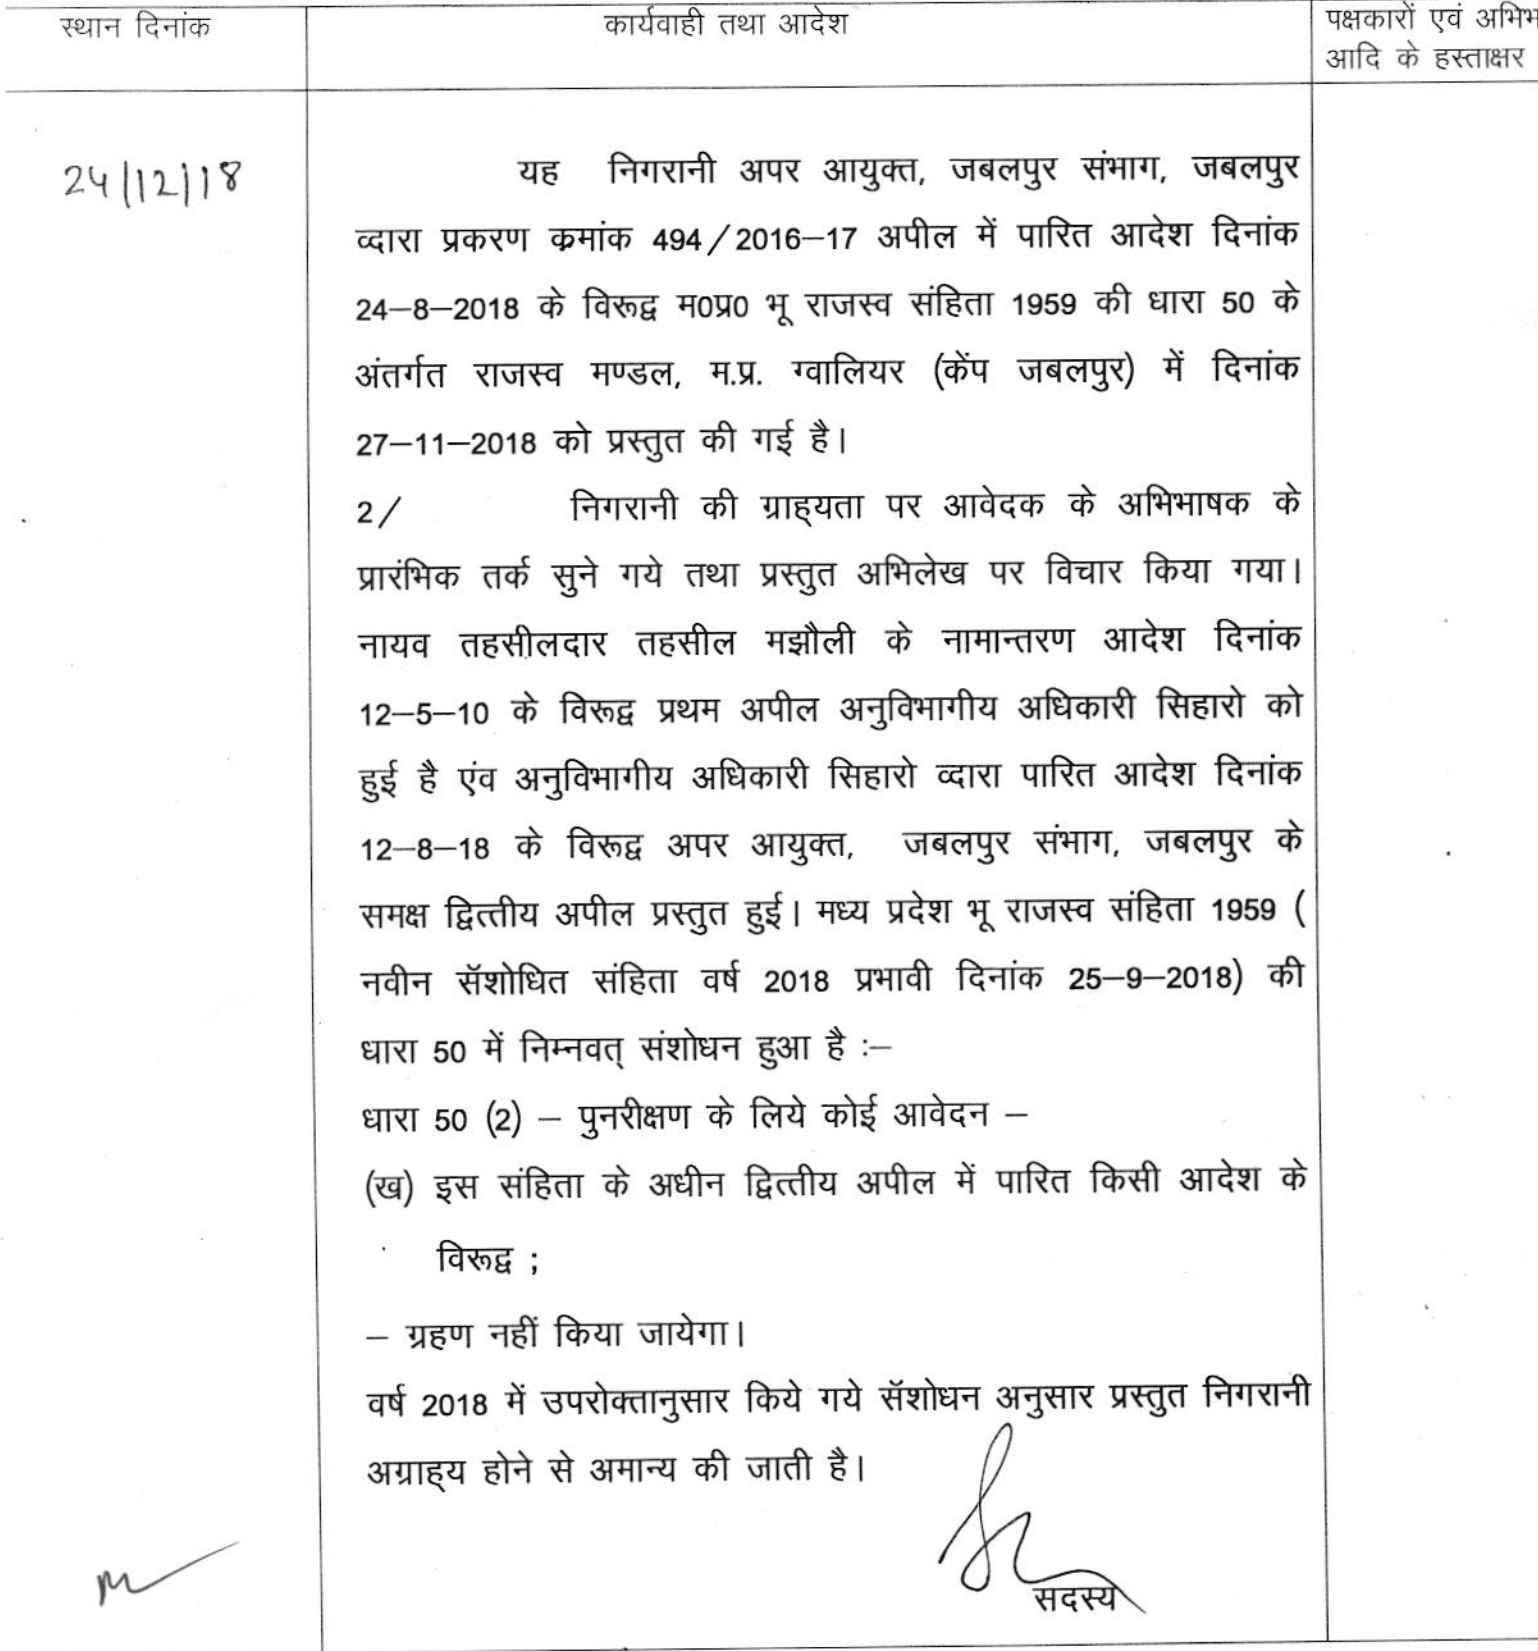 स्थान दिनांक
कार्यवाही तथा आदेश
पक्षकारों एवं अभिभ
आदि के हस्ताक्षर
24/12/18
यह निगरानी अपर आयुक्त, जबलपुर संभाग, जबलपुर
व्दारा प्रकरण कमांक 494/2016–17 अपील में पारित आदेश दिनांक
24–8–2018 के विरूद्व म0प्र0 भू राजस्व संहिता 1959 की धारा 50 के
अंतर्गत राजस्व मण्डल, म.प्र. ग्वालियर (केंप जबलपुर) में दिनांक
27–11–2018 को प्रस्तुत की गई है।
2/ निगरानी की ग्राह्यता पर आवेदक के अभिभाषक के
प्रारंभिक तर्क सुने गये तथा प्रस्तुत अभिलेख पर विचार किया गया।
नायव तहसीलदार तहसील मझौली के नामान्तरण आदेश दिनांक
12–5–10 के विरूद्व प्रथम अपील अनुविभागीय अधिकारी सिहारो को
हुई है एंव अनुविभागीय अधिकारी सिहारो व्दारा पारित आदेश दिनांक
12–8–18 के विरूद्व अपर आयुक्त, जबलपुर संभाग, जबलपुर के
समक्ष द्वित्तीय अपील प्रस्तुत हुई। मध्य प्रदेश भू राजस्व संहिता 1959 (
नवीन सॅशोधित संहिता वर्ष 2018 प्रभावी दिनांक 25–9–2018) की
धारा 50 में निम्नवत् संशोधन हुआ है :–
धारा 50 (2) – पुनरीक्षण के लिये कोई आवेदन –
(ख) इस संहिता के अधीन द्वित्तीय अपील में पारित किसी आदेश के
विरूद्व ;
– ग्रहण नहीं किया जायेगा।
वर्ष 2018 में उपरोक्तानुसार किये गये सॅशोधन अनुसार प्रस्तुत निगरानी
अग्राह्य होने से अमान्य की जाती है।
सदस्य